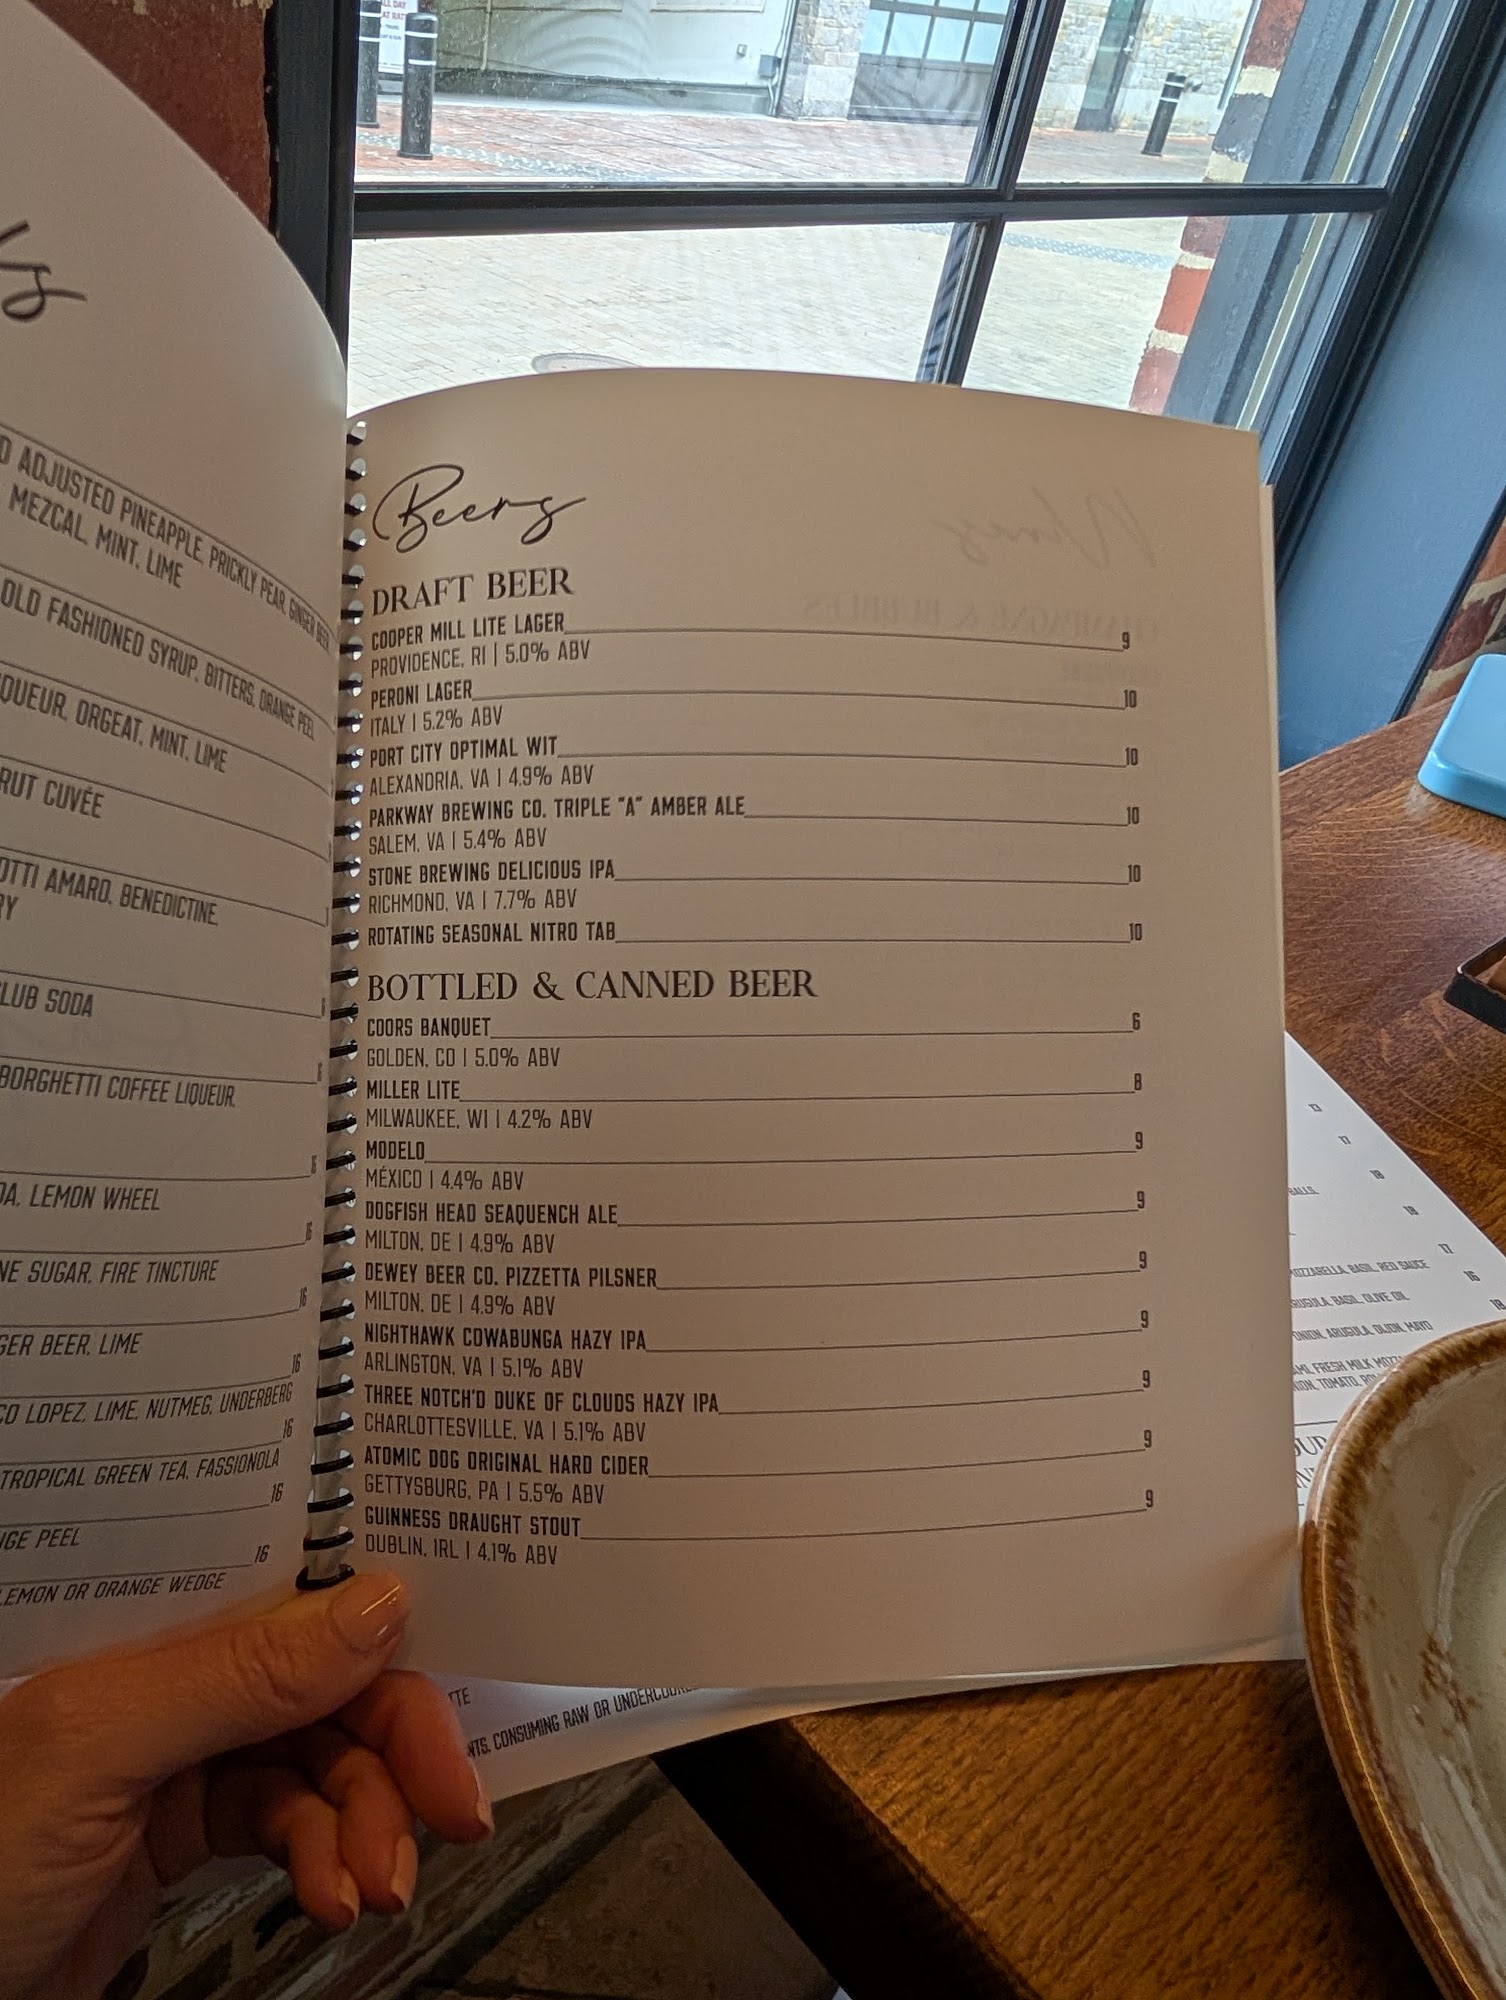 ALL DAY
D ADJUSTED PINEAPPLE, PRICKLY PEAR, GINGER BEER,
MEZCAL, MINT, LIME
OLD FASHIONED SYRUP, BITTERS, ORANGE PEEL
QUEUR, ORGEAT, MINT, LIME
RUT CUVÉE
OTTI AMARO, BENEDICTINE,
RY
LUB SODA
6
BORGHETTI COFFEE LIQUEUR,
DA, LEMON WHEEL
16
NE SUGAR, FIRE TINCTURE
16
GER BEER, LIME
16
CO LOPEZ, LIME, NUTMEG, UNDERBERG
16
TROPICAL GREEN TEA, FASSIONOLA
16
NGE PEEL
16
LEMON OR ORANGE WEDGE
Beers
DRAFT BEER
COOPER MILL LITE LAGER 9
PROVIDENCE, RI | 5.0% ABV
PERONI LAGER 10
ITALY | 5.2% ABV
PORT CITY OPTIMAL WIT 10
ALEXANDRIA, VA | 4.9% ABV
PARKWAY BREWING CO. TRIPLE "A" AMBER ALE 10
SALEM, VA | 5.4% ABV
STONE BREWING DELICIOUS IPA 10
RICHMOND, VA | 7.7% ABV
ROTATING SEASONAL NITRO TAB 10
BOTTLED & CANNED BEER
COORS BANQUET 6
GOLDEN, CO | 5.0% ABV
MILLER LITE 8
MILWAUKEE, WI | 4.2% ABV
MODELO 9
MÉXICO | 4.4% ABV
DOGFISH HEAD SEAQUENCH ALE 9
MILTON, DE | 4.9% ABV
DEWEY BEER CO. PIZZETTA PILSNER 9
MILTON, DE | 4.9% ABV
NIGHTHAWK COWABUNGA HAZY IPA 9
ARLINGTON, VA | 5.1% ABV
THREE NOTCH'D DUKE OF CLOUDS HAZY IPA 9
CHARLOTTESVILLE, VA | 5.1% ABV
ATOMIC DOG ORIGINAL HARD CIDER 9
GETTYSBURG, PA | 5.5% ABV
GUINNESS DRAUGHT STOUT 9
DUBLIN, IRL | 4.1% ABV
13
17
18
BALLS,
19
17
MOZZARELLA, BASIL, RED SAUCE
16
ARUGULA, BASIL, OLIVE OIL
18
ONION, ARUGULA, DIJON, MAYO
AMI, FRESH MILK MOZZ
NION, TOMATO,
OUR
TTE
NTS. CONSUMING RAW OR UNDERCOOKE